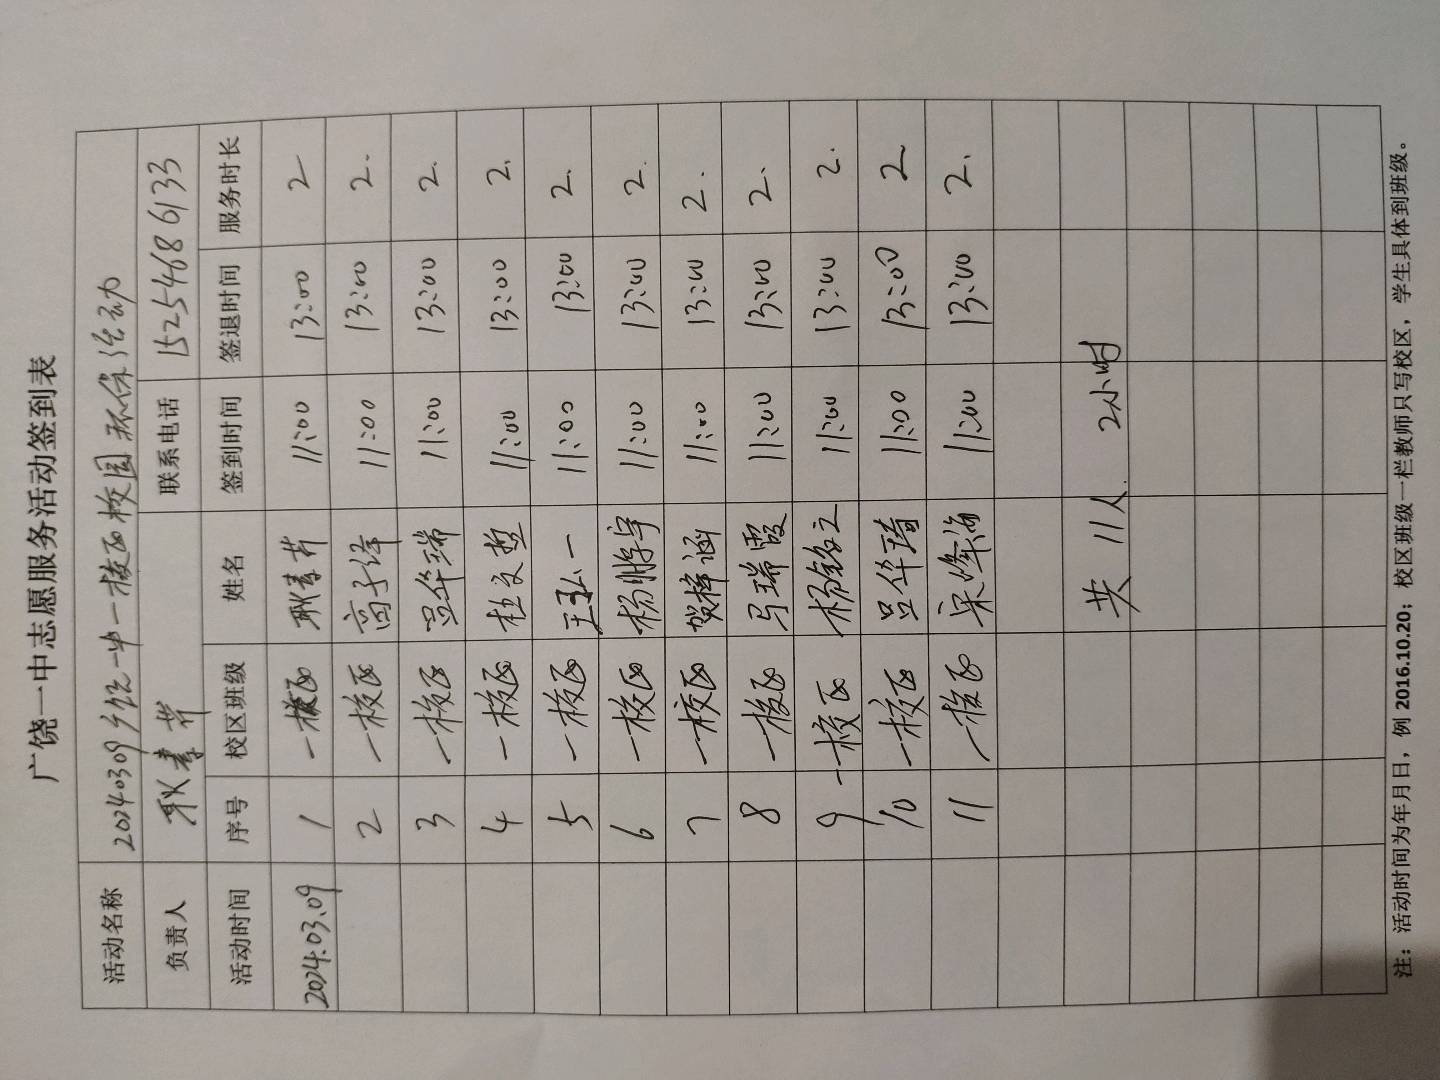 广饶一中志愿服务活动签到表
活动名称 20240309 一中一校区校园环保活动
负责人 联系电话 15254686133
活动时间 序号 校区班级 姓名 签到时间 签退时间 服务时长
2024.03.09 1 一校区 11:00 13:00 2
2 一校区 高子绎 11:00 13:00 2.
3 一校区 吕华瑞 11:00 13:00 2.
4 一校区 杜文哲 11:00 13:00 2.
5 一校区 王弘一 11:00 13:00 2.
6 一校区 杨鹏宇 11:00 13:00 2.
7 一校区 贺梓涵 11:00 13:00 2.
8 一校区 马瑞霞 11:00 13:00 2.
9 一校区 杨铭之 11:00 13:00 2.
10 一校区 吕华琦 11:00 13:00 2
11 一校区 宋峰海 11:00 13:00 2.
共 11人. 2小时
注： 活动时间为年月日，例 2016.10.20；校区班级一栏教师只写校区，学生具体到班级。